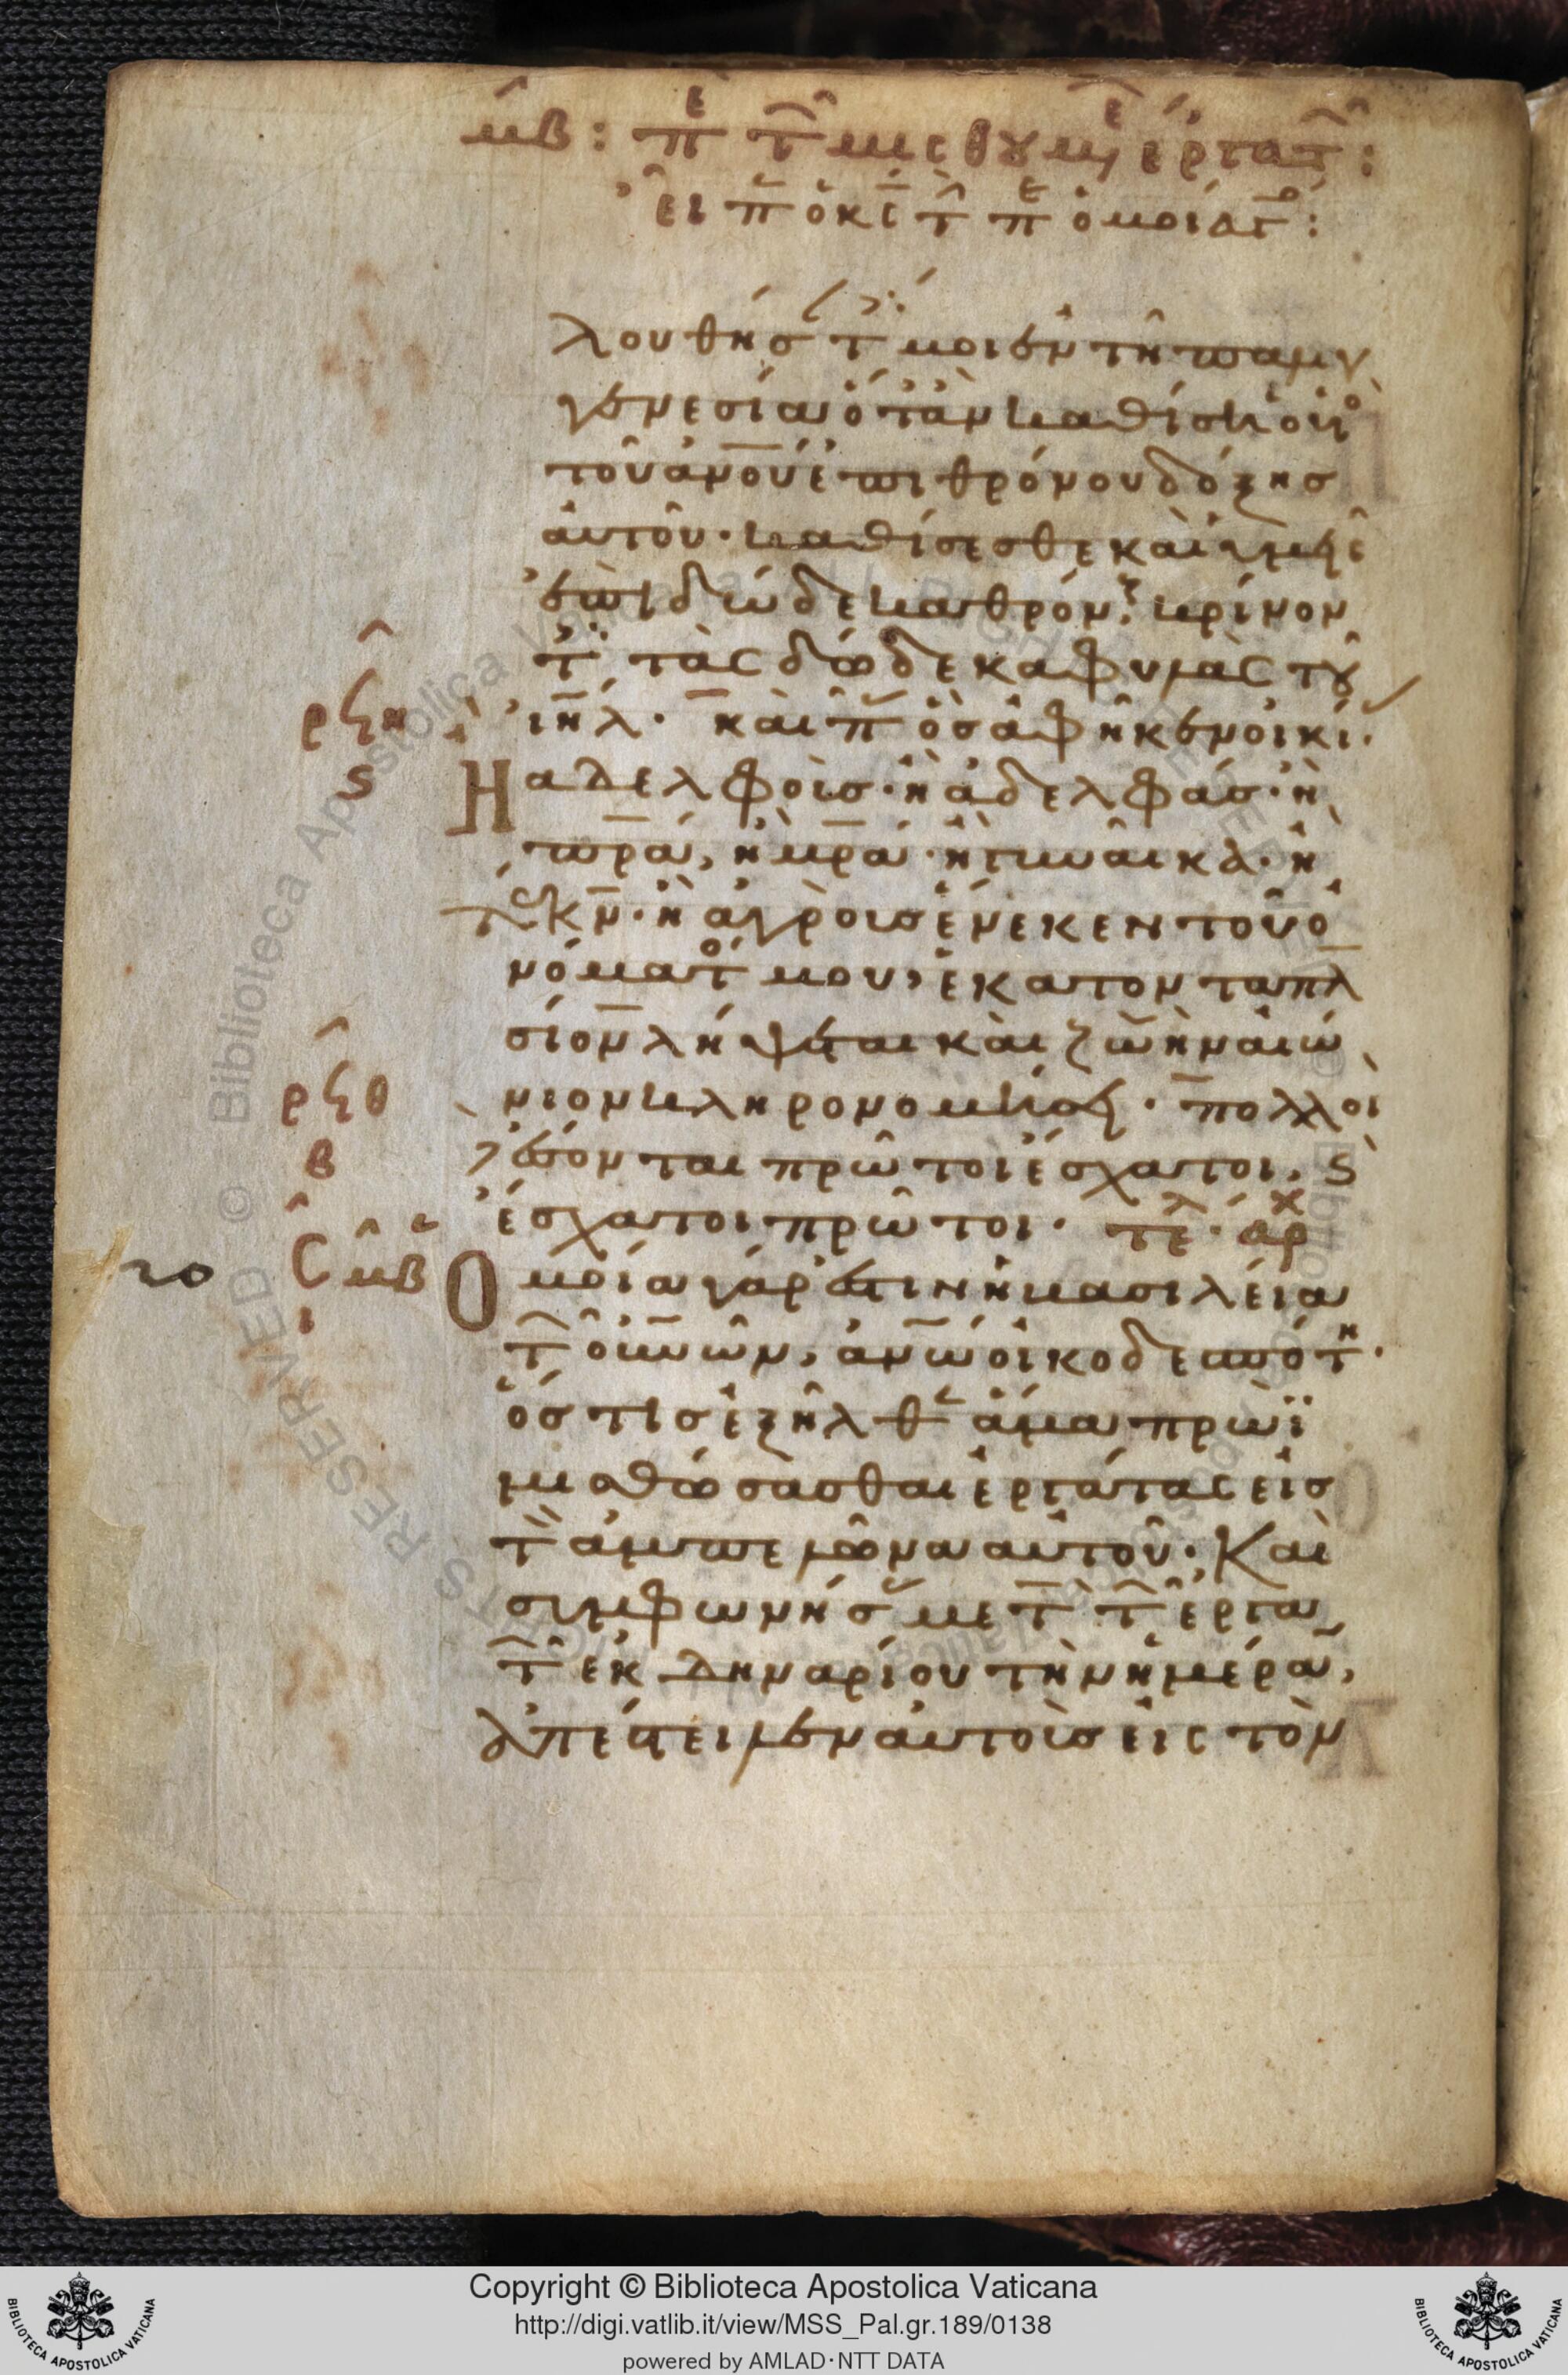 μβ: π τ μισθουμ εργατ:
ει π ο κς τ π ομοιας:
λουθησ τ μοι εν τη παλιγ
γενεσία ὅταν καθίση ὁ υἱος
τοῦ ἀνου ἐπι θρόνου δόξησ
αὐτοῦ· καθίσεσθε και ὑμεῖς
ἐπι δώδεκα θρόν, κρίνον
τ τὰς δώδεκα φυλὰς τοῦ
ιηλ· και π ὃσ ἀφῆκεν οἰκί·
Η αδελφοὺσ· ἢ ἀδελφάσ· ἢ
πρα, ἢ μρα· ἢ γυναικα· ἢ
τεκν· ἢ ἀγροὺσ ἕνεκεν τοῦ ὀ
νόματ μου, ἑκατονταπλ
σίον λήψεται και ζωὴν αἰώ
νιον κληρονομήσει· πολλοὶ
δὲ ἔσονται πρῶτοι ἔσχατοι, ϛ
ἔσχατοι πρῶτοι· τελ· αρχ
Ὁμοία γάρ ἐστιν ἡ βασιλεία
τ οὐνῶν, ἀνω οἰκοδεσπότη·
ὅστισ ἐξῆλθ ἅμα πρωῒ
μισθώσασθαι ἐργάτας εἰσ
τ ἀμπελῶνα αὐτοῦ· Και
συμφωνήσ μετ τ ἐργα
τ ἐκ δηναρίου τὴν ἡμέραν,
ἀπέστειλεν αὐτοὺσ εἰς τὸν
ρϟη
ϛ
ρϟθ
β
20
Ϲ μβ
ι
Copyright © Biblioteca Apostolica Vaticana
http://digi.vatlib.it/view/MSS_Pal.gr.189/0138
powered by AMLAD·NTT DATA
BIBLIOTECA APOSTOLICA VATICANA
BIBLIOTECA APOSTOLICA VATICANA